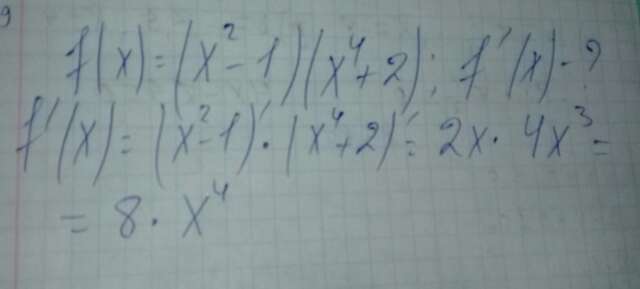 9
f(x) = (x² - 1)(x⁴ + 2); f'(x) - ?
f'(x) = (x² - 1)' · (x⁴ + 2)' = 2x · 4x³ =
= 8 · x⁴